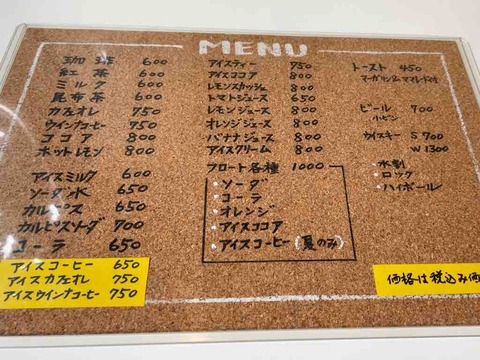 MENU
珈琲 600
紅茶 600
ミルク 600
昆布茶 600
カフェオレ 750
ウインナコーヒー 750
ココア 800
ホットレモン 800
アイスミルク 600
ソーダ水 650
カルピス 650
カルピスソーダ 700
コーラ 650
アイスコーヒー 650
アイスカフェオレ 750
アイスウインナコーヒー 750
アイスティー 750
アイスココア 800
レモンスカッシュ 800
トマトジュース 650
レモンジュース 800
オレンジジュース 800
バナナジュース 800
アイスクリーム 800
フロート各種 1000
・ソーダ
・コーラ
・オレンジ
・アイスココア
・アイスコーヒー(夏のみ)
トースト 450
マーガリン&ママレード付
ビール 700
小ビン
ウイスキー S 700
W 1300
・水割
・ロック
・ハイボール
価格は税込み価